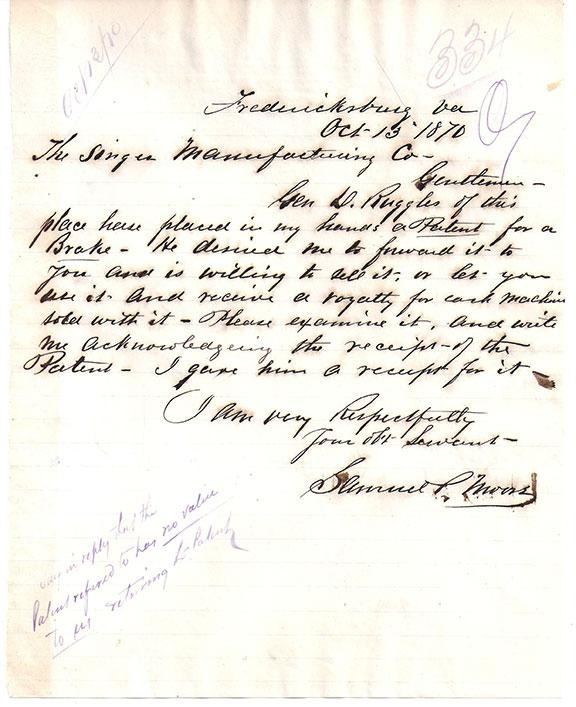 334
Fredericksburg Va
Oct 13 1870
The Singer Manufacturing Co -
Gentlemen -
Gen D. Ruggles of this
place have placed in my hands a Patent for a
Brake - He desired me to forward it to
you and is willing to sell it, or let you
use it and receive a royalty for each machine
sold with it - Please examine it, and write
me acknowledgeing the receipt of the
Patent - I gave him a receipt for it
I am very Respectfully
Your obt Servant -
Samuel P. Moore
in reply that the
Patent refered to has no value
to us returning Patent